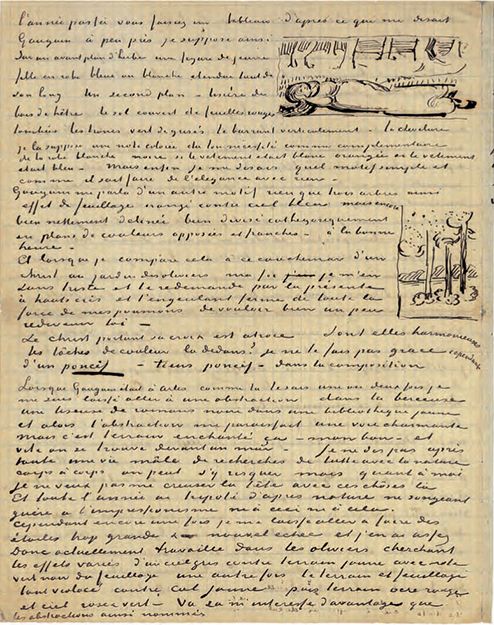 l'année passée vous faisiez un tableau d'après ce que me disait
Gauguin à peu près je suppose ainsi
Sur un avant plan d'herbe une figure de jeune
fille en robe bleue ou blanche etendue tout de
son long Un second plan – lisière de
bois de hêtre le sol couvert de feuilles rouges
tombées les troncs vert de grisés le barrant verticalement – la chevelure
je la suppose une note colorée du ton nécessité comme complémentaire
de la robe blanche noire si le vêtement etait blanc orangée si le vêtement
etait bleu – mais enfin je me disais quel motif simple et
comme il sait faire de l'élegance avec rien –
Gauguin me parla d'un autre motif rien que trois arbres ainsi
effet de feuillage orangé contre ciel bleu mais encore
bien nettement délinée bien divisé cathegoriquement
en plans de couleurs opposées et franches – à la bonne
heure –
Et lorsque je compare cela à ce cauchemar d'un
Christ au jardin des oliviers ma foi je m'en
sens triste et te redemande par la présente
à hauts cris et t'engeulant ferme de toute la
force de mes poumons de vouloir bien un peu
redevenir toi –
Le Christ portant sa croix est atroce Sont elles harmonieuses
les tâches de couleur là dedans? je ne te fais pas grace cependant
d'un poncif – tiens poncif – dans la composition
Lorsque Gauguin etait à Arles comme tu le sais une ou deux fois je
me suis laissé aller à une abstraction dans la berceuse
une liseuse de romans noire dans une bibliothèque jaune
et alors l'abstraction me paraissait une voie charmante
mais c'est terrain enchanté ça – mon bon – et
vite on se trouve devant un mur – Je ne dis pas après
toute une vie mâle de recherches de lutte avec la nature
corps à corps on peut s'y risquer mais quant à moi
je ne veux pas me creuser la tête avec ces choses là
Et toute l'année ai tripoté d'après nature ne songeant
guère à l'impressionisme ni à ceci ni à cela.
Cependant encore une fois je me laisse aller à faire des
étoiles trop grandes &– nouvel echec et j'en ai assez
Donc actuellement travaille dans les oliviers cherchant
les effets variés d'un ciel gris contre terrain jaune avec note
vert noir du feuillage une autre fois le terrain et feuillage
tout violacé contre ciel jaune puis terrain ocre rouge
et ciel rose vert – Va ça m'interesse davantage que
les abstractions ainsi nommées